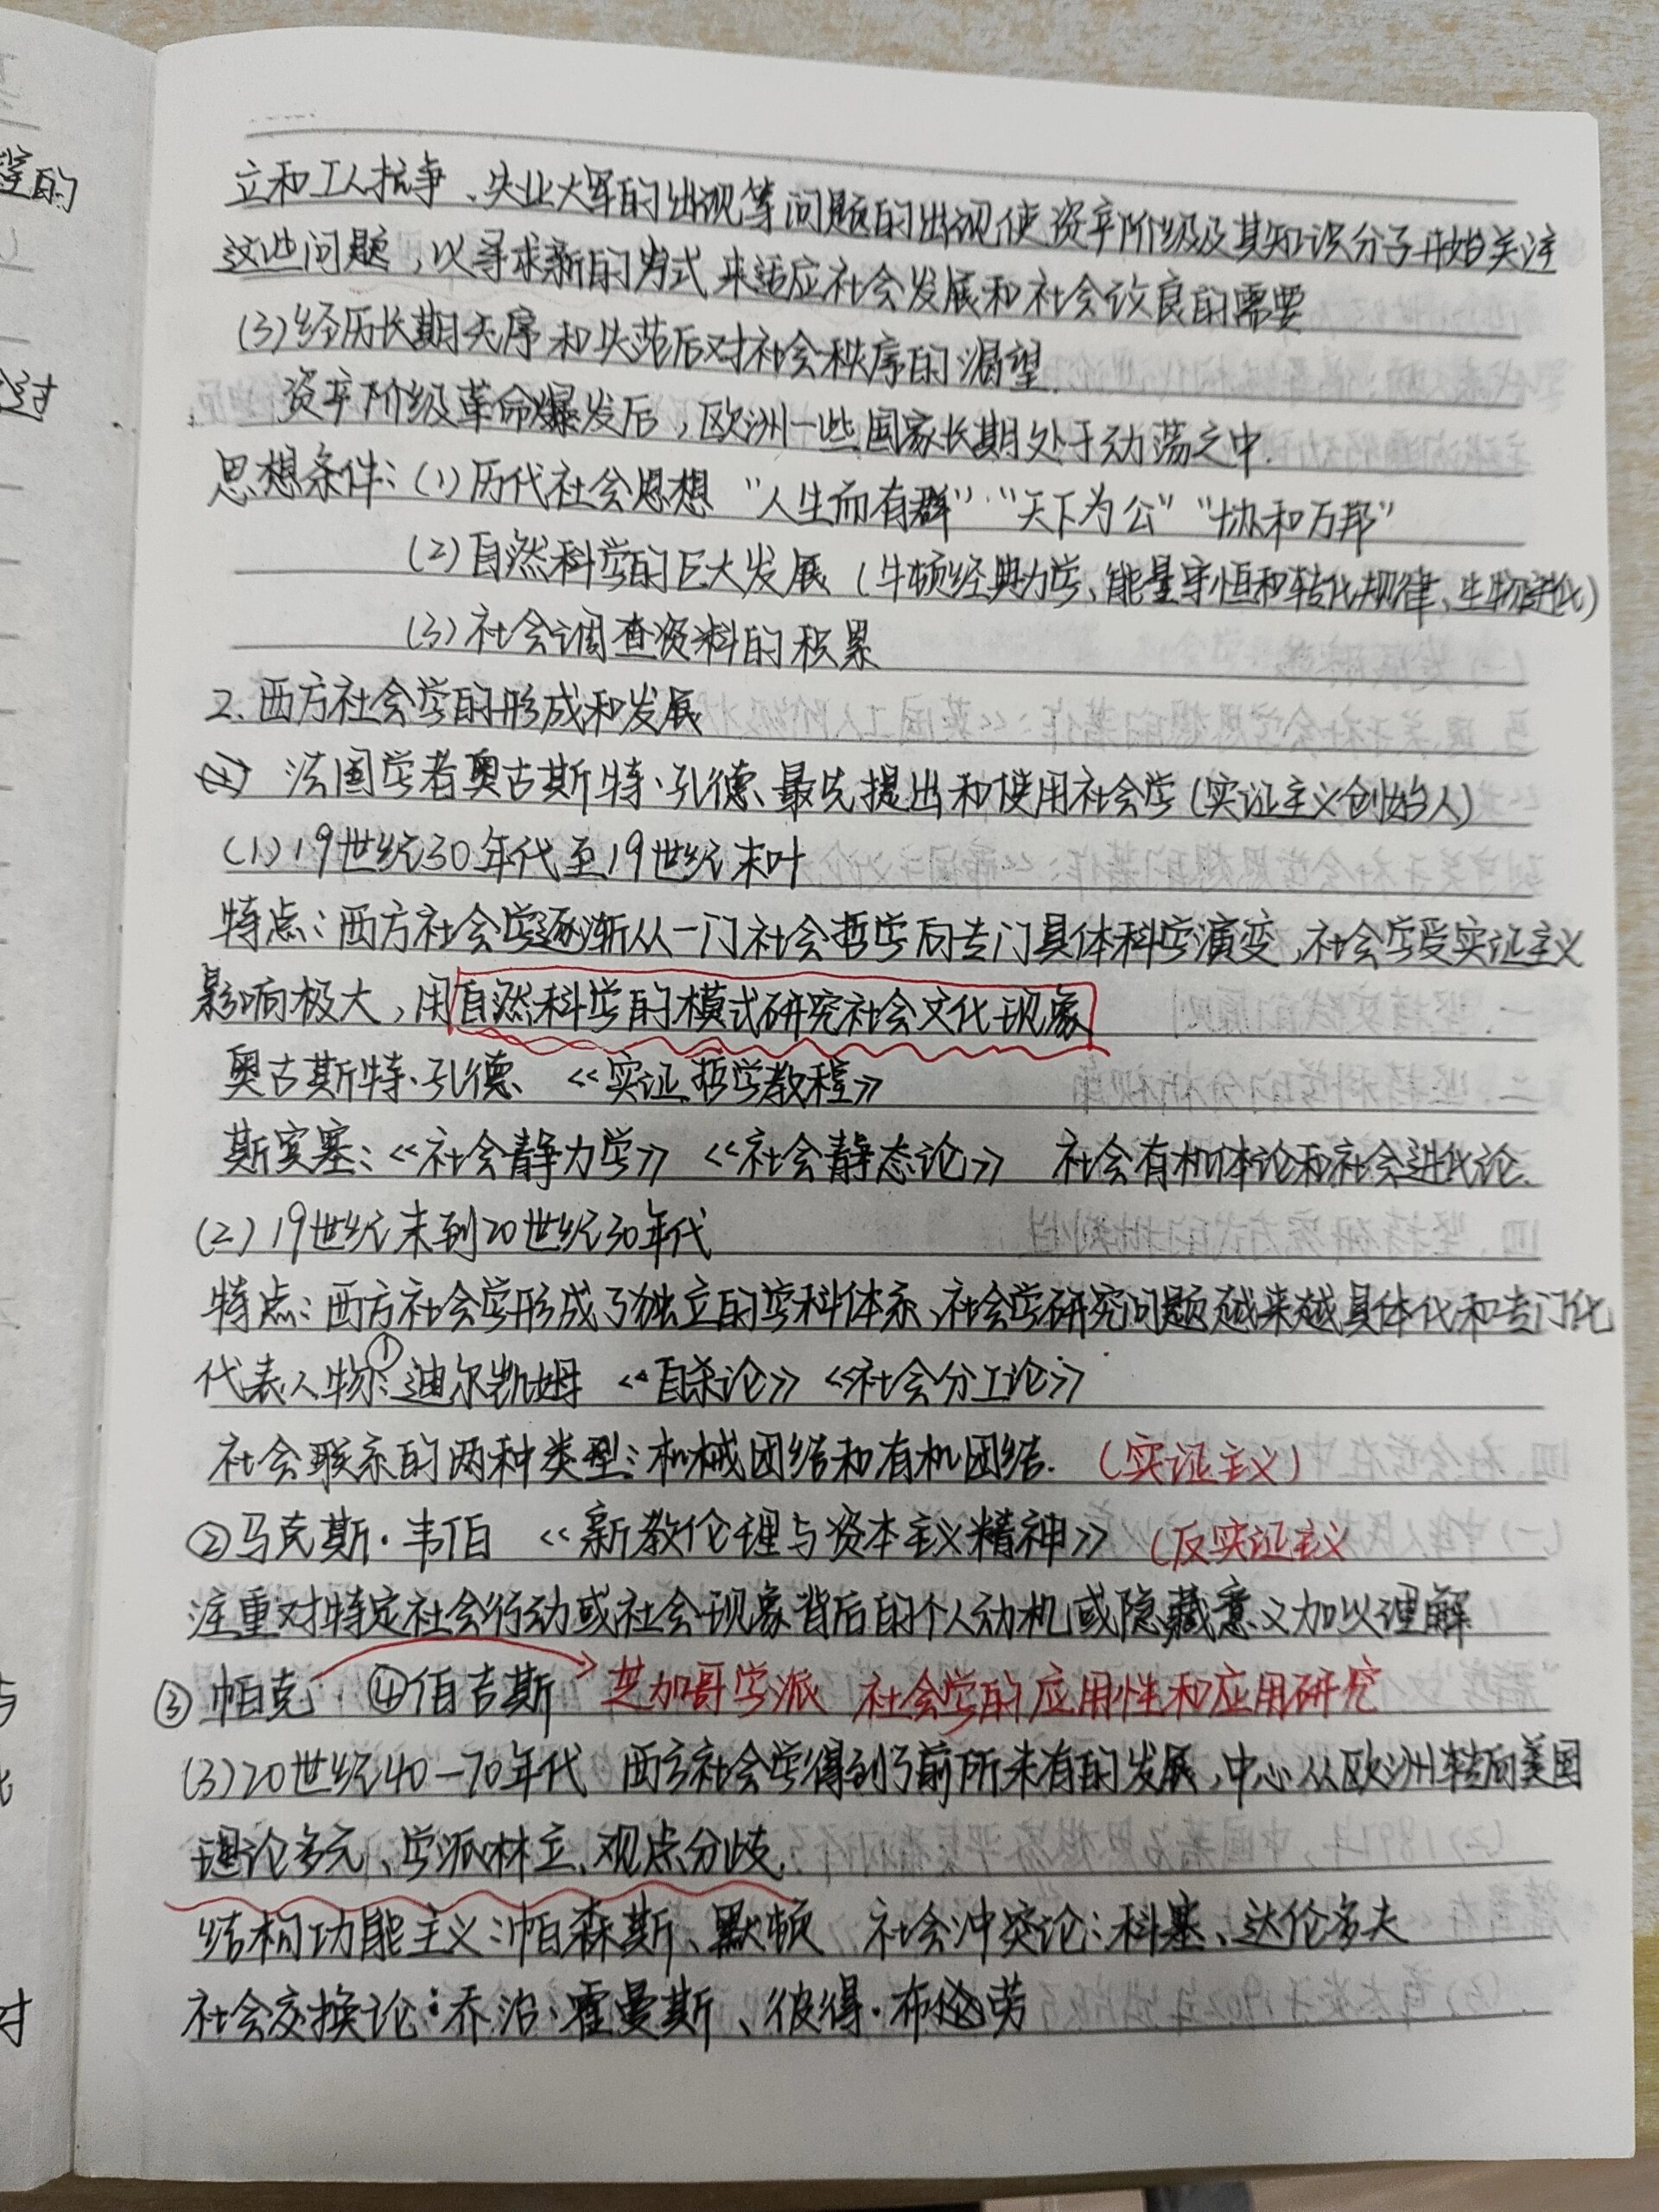 程的
过
与
对
立和工人抗争、失业大军的出现等问题的出现使资产阶级及其知识分子开始关注
这些问题,以寻求新的方式来适应社会发展和社会改良的需要
(3)经历长期无序和失范后对社会秩序的渴望.
资产阶级革命爆发后,欧洲一些国家长期处于动荡之中.
思想条件:(1)历代社会思想 “人生而有群”“天下为公”“协和万邦”
(2)自然科学的巨大发展(牛顿经典力学、能量守恒和转化规律、生物进化)
(3)社会调查资料的积累
2.西方社会学的形成和发展
法国学者奥古斯特·孔德、最先提出和使用社会学(实证主义创始人)
(1)19世纪30年代至19世纪末叶
特点:西方社会学逐渐从一门社会哲学向专门具体科学演变,社会学受实证主义
影响极大,用自然科学的模式研究社会文化现象
奥古斯特·孔德、《实证哲学教程》
斯宾塞:《社会静力学》《社会静态论》 社会有机体论和社会进化论.
(2)19世纪末到20世纪30年代
特点:西方社会学形成了独立的学科体系、社会学研究问题越来越具体化和专门化
代表人物:①迪尔凯姆 《自杀论》《社会分工论》
社会联系的两种类型:机械团结和有机团结.(实证主义)
②马克斯·韦伯 《新教伦理与资本主义精神》(反实证主义
注重对特定社会行动或社会现象背后的个人动机或隐藏意义加以理解
③帕克 ④伯吉斯 芝加哥学派 社会学的应用性和应用研究
(3)20世纪40—70年代 西方社会学得到了前所未有的发展,中心从欧洲转向美国
理论多元、学派林立、观点分歧.
结构功能主义:帕森斯、默顿 社会冲突论:科塞、达伦多夫
社会交换论:乔治·霍曼斯、彼得·布劳